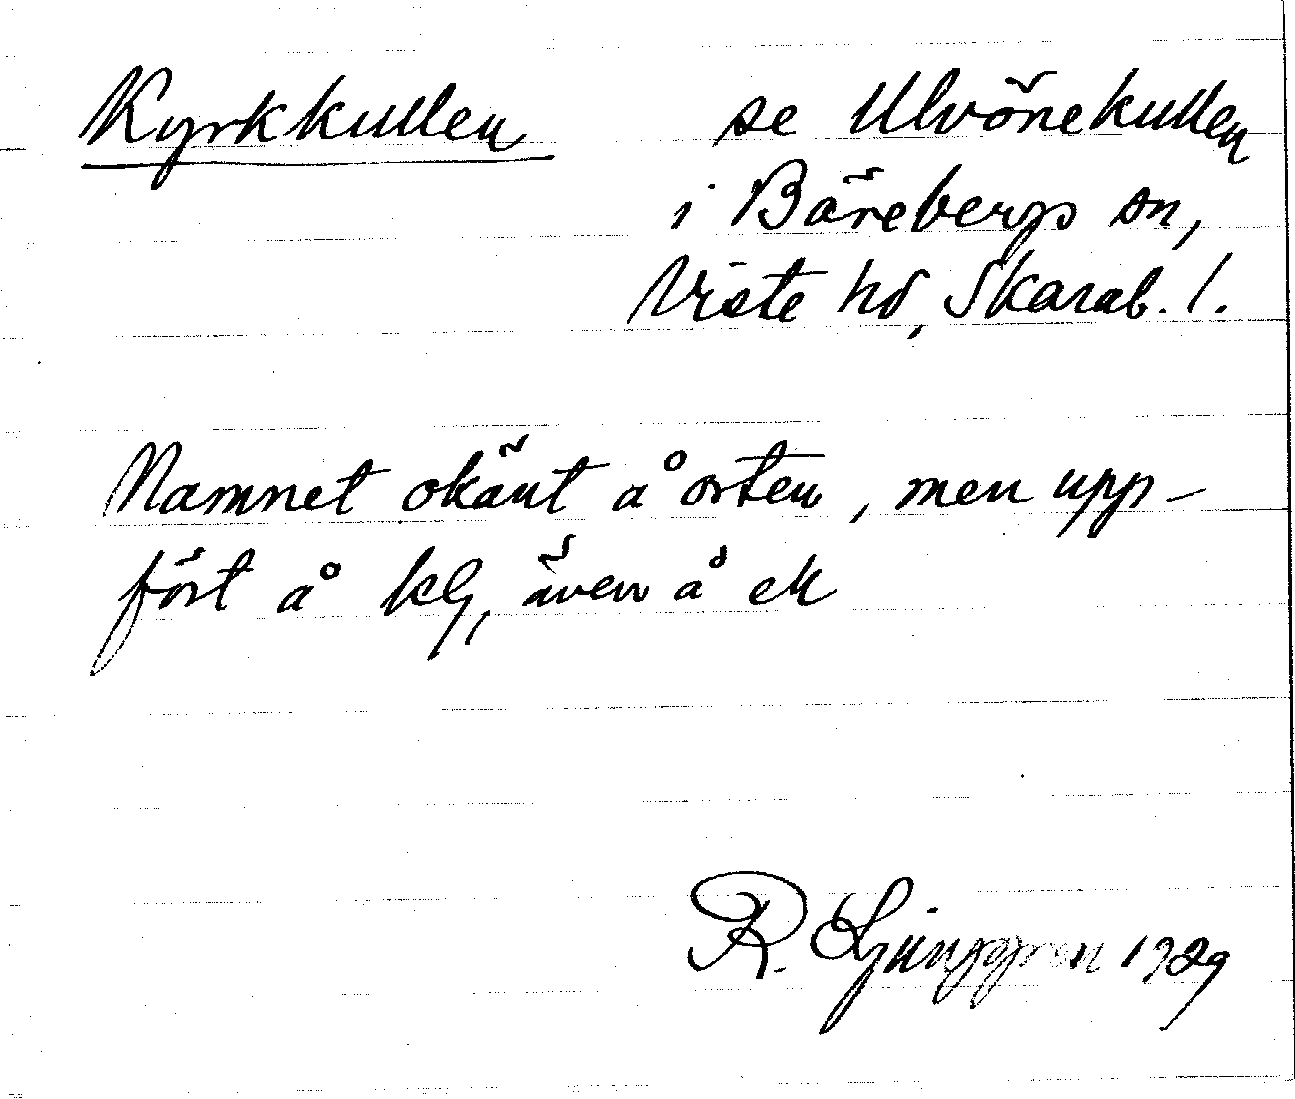 Kyrkkullen se Ulvönekullen
i Bärebergs sn,
Viste hd, Skarab. l.
Namnet okänt å orten, men upp-
fört å kG, även å ek
R. Ljunggren 1929